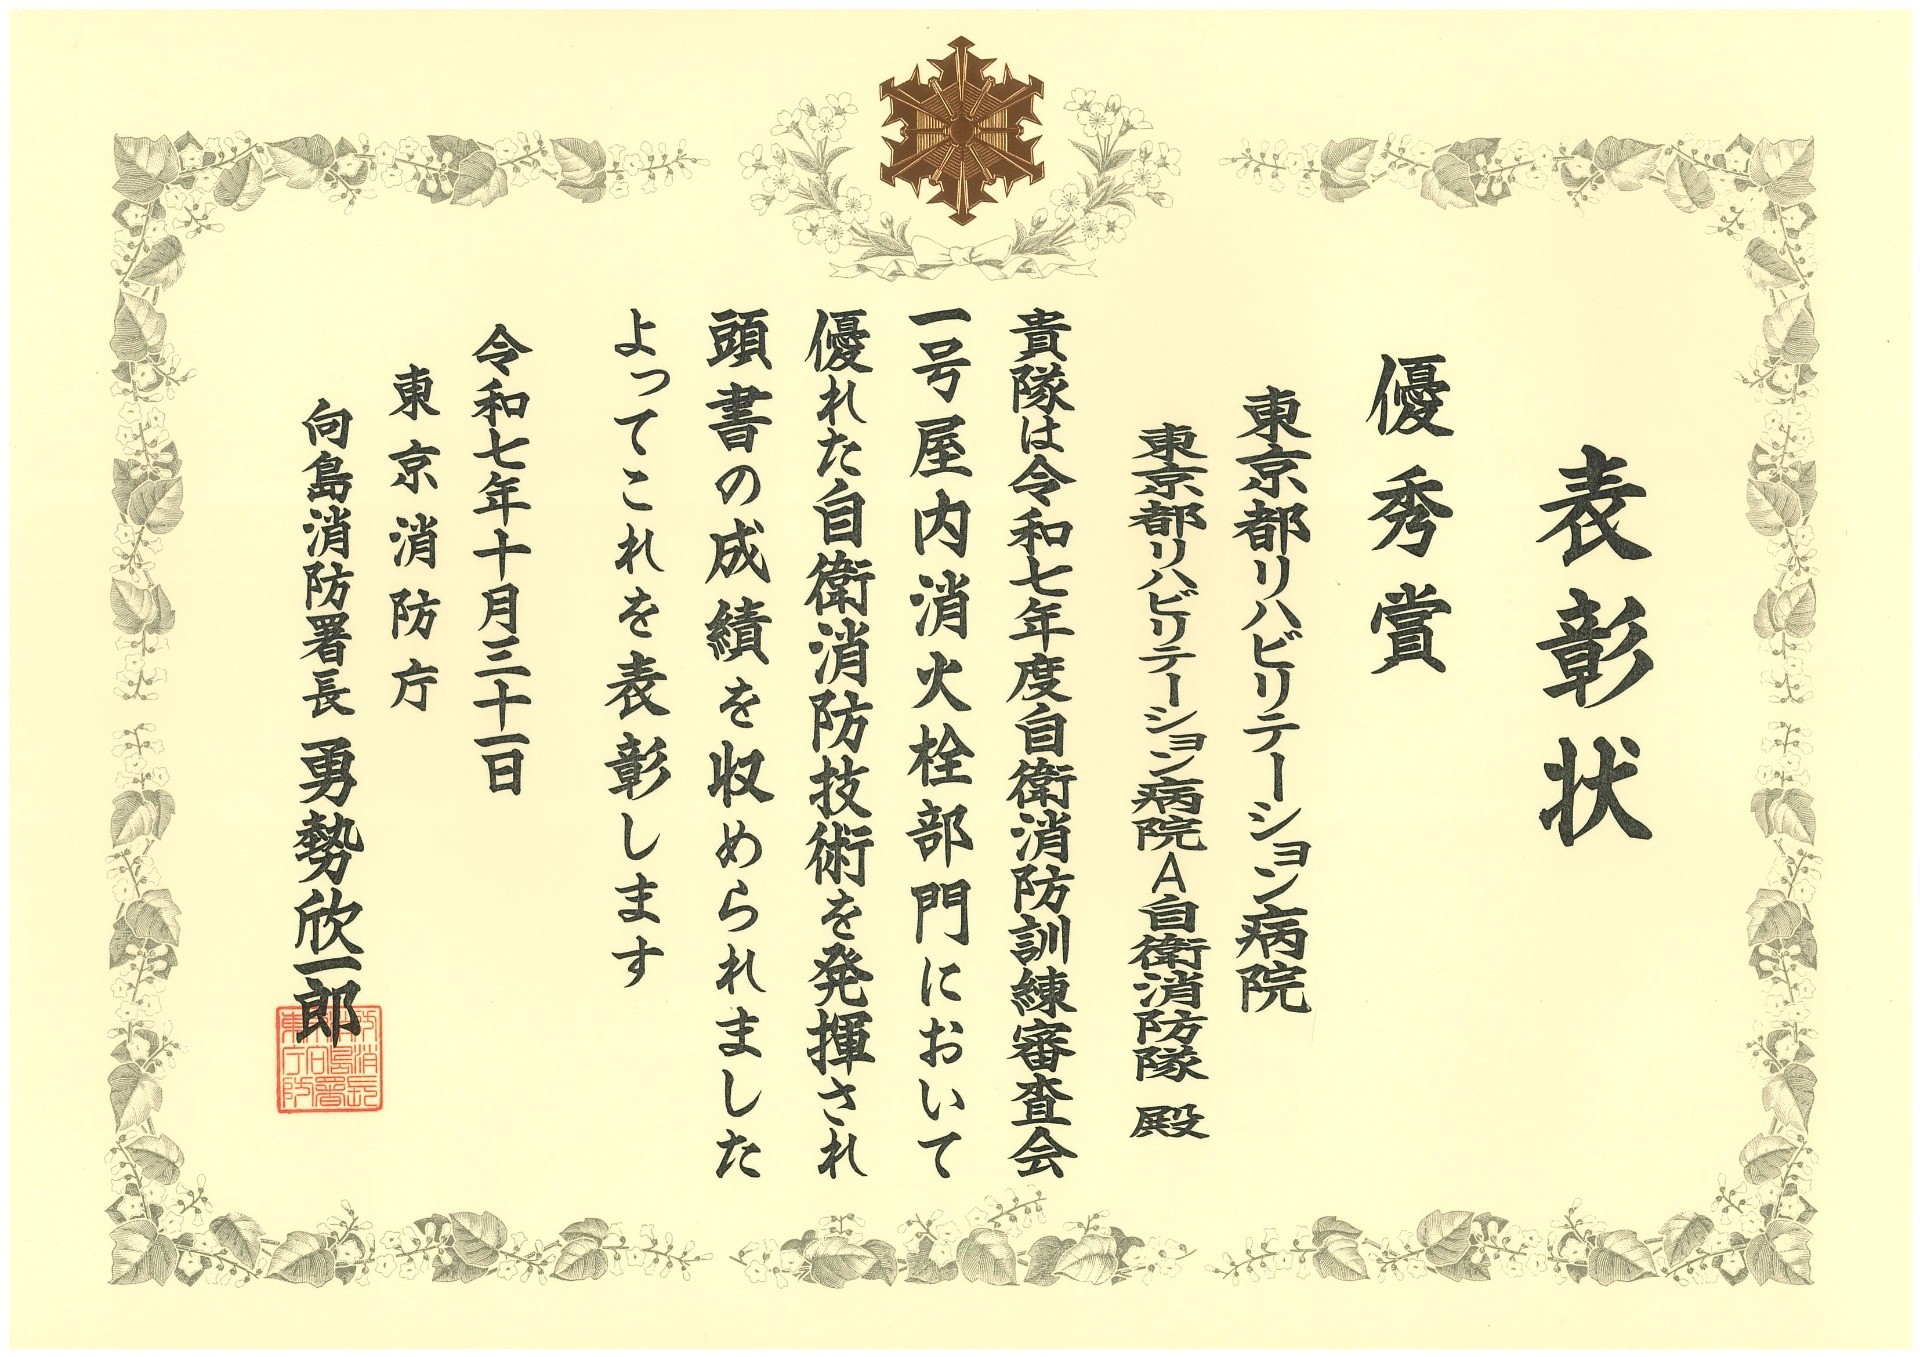 表彰状
優秀賞
東京都リハビリテーション病院
東京都リハビリテーション病院A自衛消防隊 殿
貴隊は令和七年度自衛消防訓練審査会
一号屋内消火栓部門において
優れた自衛消防技術を発揮され
頭書の成績を収められました
よってこれを表彰します
令和七年十月三十一日
東京消防庁
向島消防署長 勇勢欣一郎